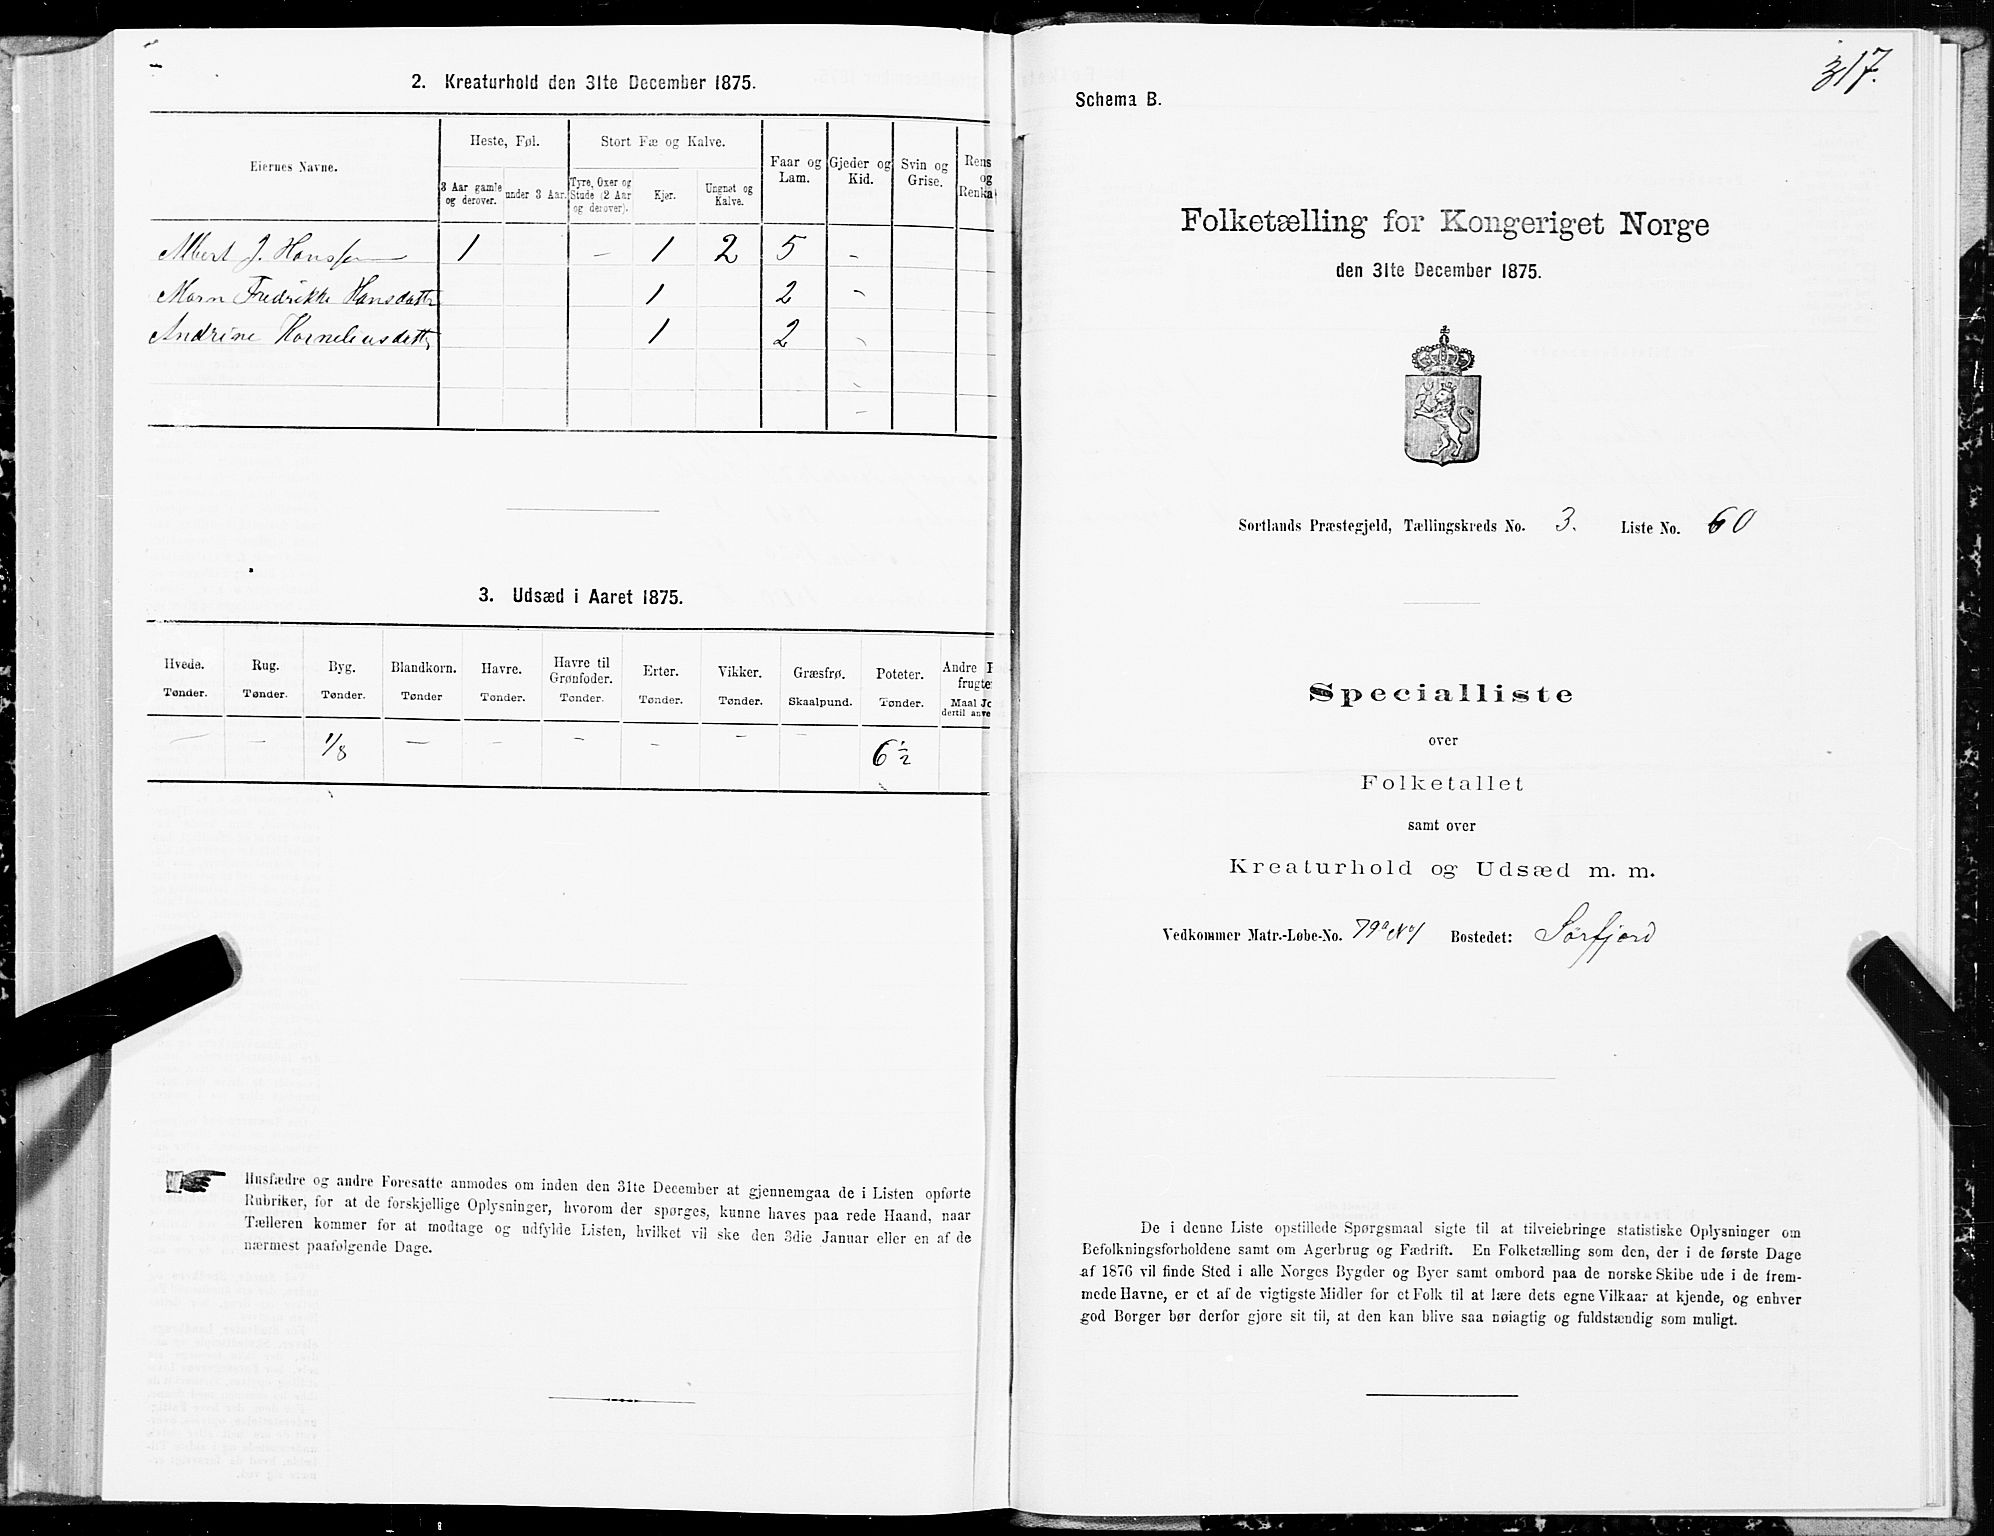 2. Kreaturhold den 31te December 1875.
Eiernes Navne.
Heste, Føl.
Stort Fæ og Kalve.
Faar og Lam.
Gjeder og Kid.
Svin og Grise.
Rens og Renka
3 Aar gamle og derover.
under 3 Aar.
Tyre, Oxer og Stude (2 Aar og derover).
Kjør.
Ungnøt og Kalve.
Albert J. Hanssen 1 – 1 2 5 –
Maren Fredrikke Hansdattr 1 2 –
Andrine Korneliusdattr 1 2 –
–
–
3. Udsæd i Aaret 1875.
Hvede. Rug. Byg. Blandkorn. Havre. Havre til Grønfoder. Erter. Vikker. Græsfrø. Poteter. Andre frugter
Tønder. Tønder. Tønder. Tønder Tønder. Tønder. Tønder. Tønder. Skaalpund. Tønder. Maal Jo dertil anve
– – 1/8 – – – – – – 6 1/2
Husfædre og andre Foresatte anmodes om inden den 31te December at gjennemgaa de i Listen opførte
Rubriker, for at de forskjellige Oplysninger, hvorom der spørges, kunne haves paa rede Haand, naar
Tælleren kommer for at modtage og udfylde Listen, hvilket vil ske den 3die Januar eller en af de
nærmest paafølgende Dage.
317.
Schema B.
Folketælling for Kongeriget Norge
den 31te December 1875.
Sortlands Præstegjeld, Tællingskreds No. 3. Liste No. 60
Specialliste
over
Folketallet
samt over
Kreaturhold og Udsæd m. m.
Vedkommer Matr.-Løbe-No. 79a No 1 Bostedet: Sørfjord
De i denne Liste opstillede Spørgsmaal sigte til at tilveiebringe statistiske Oplysninger om
Befolkningsforholdene samt om Agerbrug og Fædrift. En Folketælling som den, der i de første Dage
af 1876 vil finde Sted i alle Norges Bygder og Byer samt ombord paa de norske Skibe ude i de frem-
mede Havne, er et af de vigtigste Midler for et Folk til at lære dets egne Vilkaar at kjende, og enhver
god Borger bør derfor gjøre sit til, at den kan blive saa nøiagtig og fuldstændig som muligt.